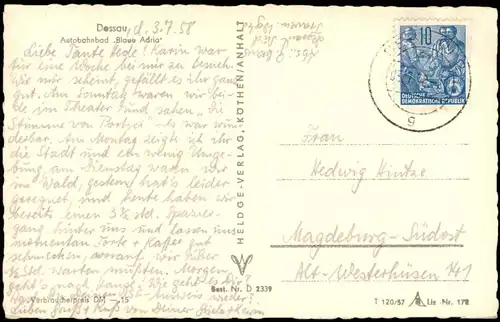 Dessau, d. 3.7.58
Autobahnbad „Blaue Adria"
Liebe Tante Hede! Karin war
für eine Woche bei mir zu Besuch.
Wie mir scheint, gefällt es ihr ganz
gut. Am Sonntag waren wir bei-
de im Theater und sahen „Die
Stumme von Portici". Es war wun
derbar. Am Montag zeigte ich ihr
die Stadt und ein wenig Umge-
bung, am Dienstag waren wir
im Wald, gestern hat's leider
geregnet, und heute haben wir
bereits einen 3½ std. Spazier-
gang hinter uns und lassen uns
momentan Torte + Kaffee gut
schmecken, worauf wir über
½ Std. warten mußten. Morgen
geht's nach Hause. Wie geht es Dir?
wieder!
Lieben Gruß + Kuß von Deiner
Verbraucherpreis DM —.15
HELDGE-VERLAG, KÖTHEN/ANHALT
Best. Nr. D 2339
10
DEUTSCHE
DEMOKRATISCHE REPUBLIK
g
Frau
Hedwig Hintze
Magdeburg-Südost
Alt-Westerhüsen 141
T 120/57 Liz. Nr. 178